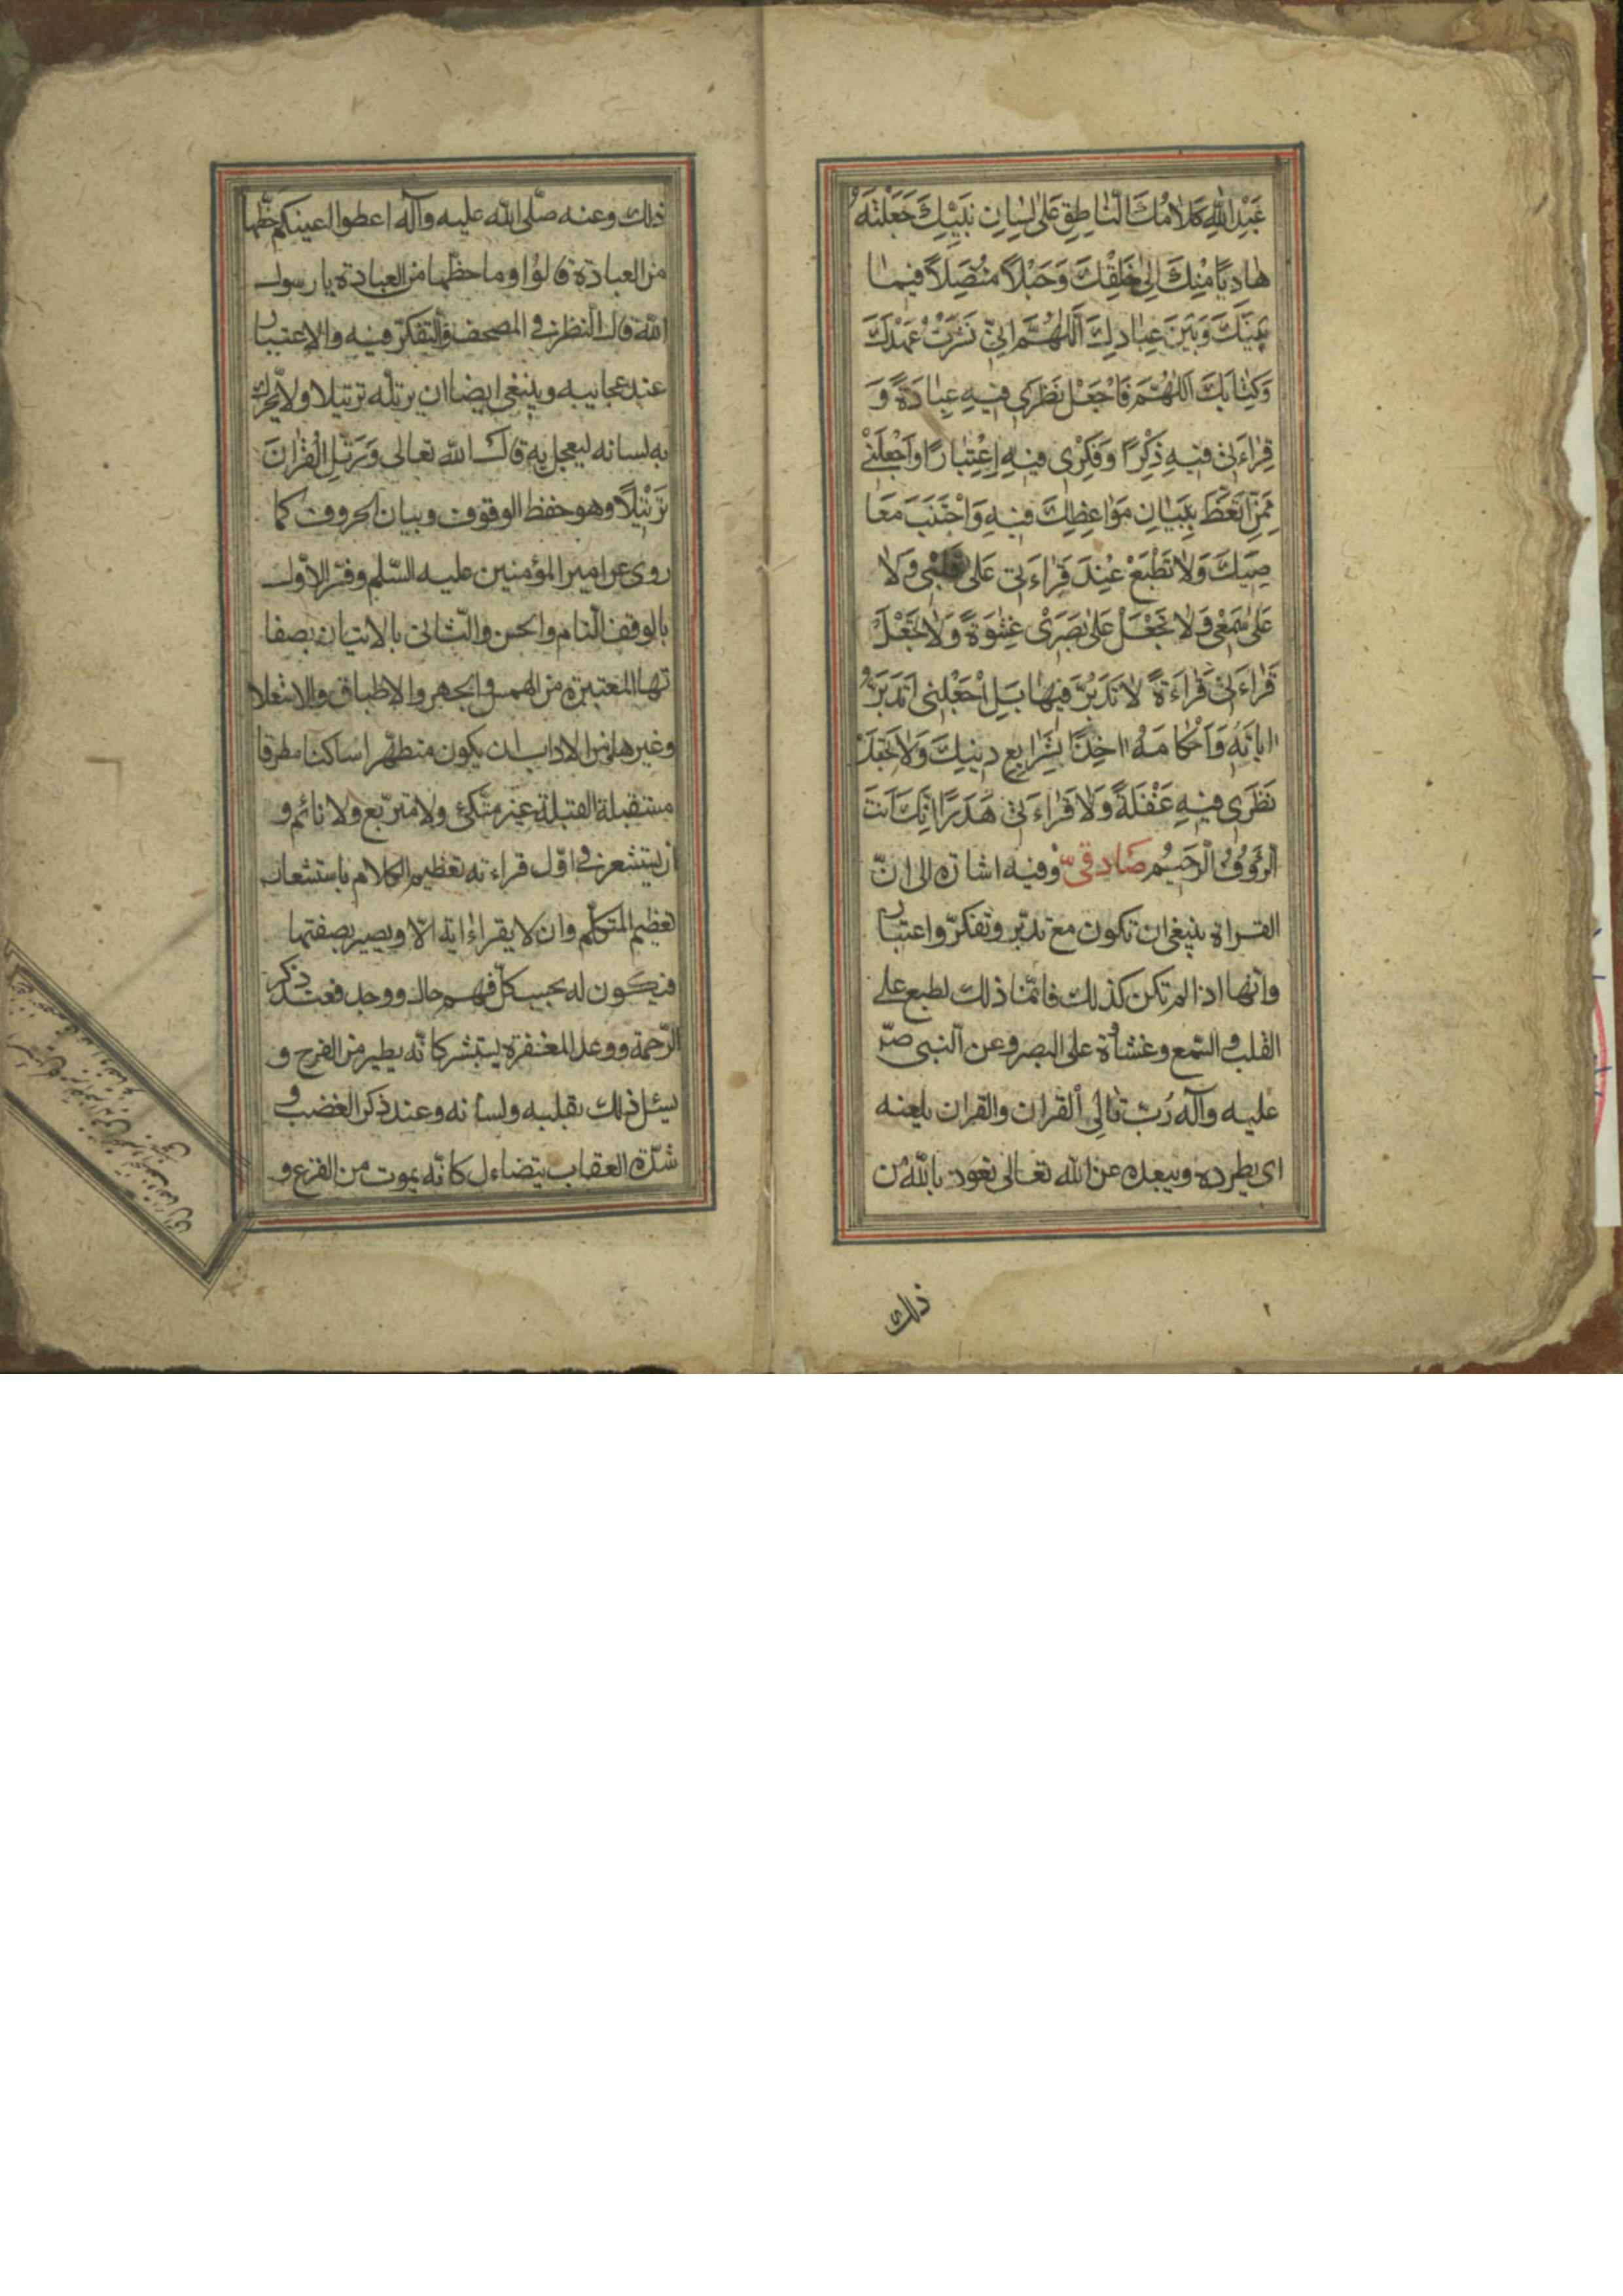 عَبْدِ اللّٰهِ كَلَامُكَ النَّاطِقِ عَلٰى لِسَانِ نَبِيِّكَ جَعَلْتَهُ
هَادِيًا مِنْكَ اِلٰى خَلْقِكَ وَحَبْلًا مُتَّصِلًا فِيمَا
بَيْنَكَ وَبَيْنَ عِبَادِكَ اَللّٰهُمَّ اِنِّي نَشَرْتُ عَهْدَكَ
وَكِتَابَكَ اَللّٰهُمَّ فَاجْعَلْ نَظَرِي فِيهِ عِبَادَةً وَ
قِرَاءَتِي فِيهِ ذِكْرًا وَفِكْرِي فِيهِ اِعْتِبَارًا وَاجْعَلْنِي
مِمَّنِ اتَّعَظَ بِبَيَانِ مَوَاعِظِكَ فِيهِ وَاجْتَنَبَ مَعَا
صِيَكَ وَلَا تَطْبَعْ عِنْدَ قِرَاءَتِي عَلٰى قَلْبِي وَلَا
عَلٰى سَمْعِي وَلَا تَجْعَلْ عَلٰى بَصَرِي غِشْوَةً وَلَا تَجْعَلْ
قَرَاءَتِي قَرَاءَةً لَا تَدَبُّرَ فِيهَا بَلِ اجْعَلْنِي اَتَدَبَّرُ
اٰيَاتِهِ وَاَحْكَامَهُ اٰخِذًا بِشَرَايِعِ دِينِكَ وَلَا تَجْعَلْ
نَظَرِي فِيهِ غَفْلَةً وَلَا قَرَاءَتِي هَدَرًا اِنَّكَ اَنْتَ
الرَّؤُوفُ الرَّحِيمُ صَادِقیّ وفيه اشارة الى انّ
القراة ينبغى ان تكون مع تدبّر وتفكّر واعتبار
وانّها اذا لم تكن كذلك فانّما ذلك لطبع على
القلب و السّمع وغشاوة على البصر وعن النبى صلّى
عليه وآله رُبّ تالِى القران والقران يلعنه
اى يطرده ويبعده عن الله تعالى نعوذ بالله من
ذلك
ذلك وعنه صلّى الله عليه وآله اعطوا اعينكم حظّها
من العبادة قالوا وما حظّها من العبادة يا رسول
الله قال النظر فى المصحف والتفكّر فيه والاعتبار
عند عجايبه وينبغى ايضا ان يرتّله ترتيلا ولا يحرّك
به لسانه ليعجل به قال الله تعالى وَرَتِّلِ الْقُرْانَ
تَرْتِيلًا وهو حفظ الوقوف وبيان الحروف كما
روى عن امير المؤمنين عليه السّلم وفسّر الاوّل
بالوقف التام والحسن والثّانى بالاتيان بصفا
تها المعتبرة من الهمس والجهر والاطباق والاستعلا
وغيرها من الاداب ان يكون متطهّرا ساكنا مطرقا
مستقبلة القبلة غير متّكئ ولا متربّع ولا نائم و
ان يستشعر فى اوّل قراءته تعظيم الكلام باستشعار
تعظيم المتكلّم وان لا يقراء اية الّا ويصير بصفتها
فيكون له بحسب كلّ فهم حال ووجد فعند ذكر
الرّحمة ووعد المغفرة يستبشر كانّه يطير من الفرح و
يسئل ذلك بقلبه ولسانه وعند ذكر الغضب و
شدّة العقاب يتضاءل كانّه يموت من الفزع و